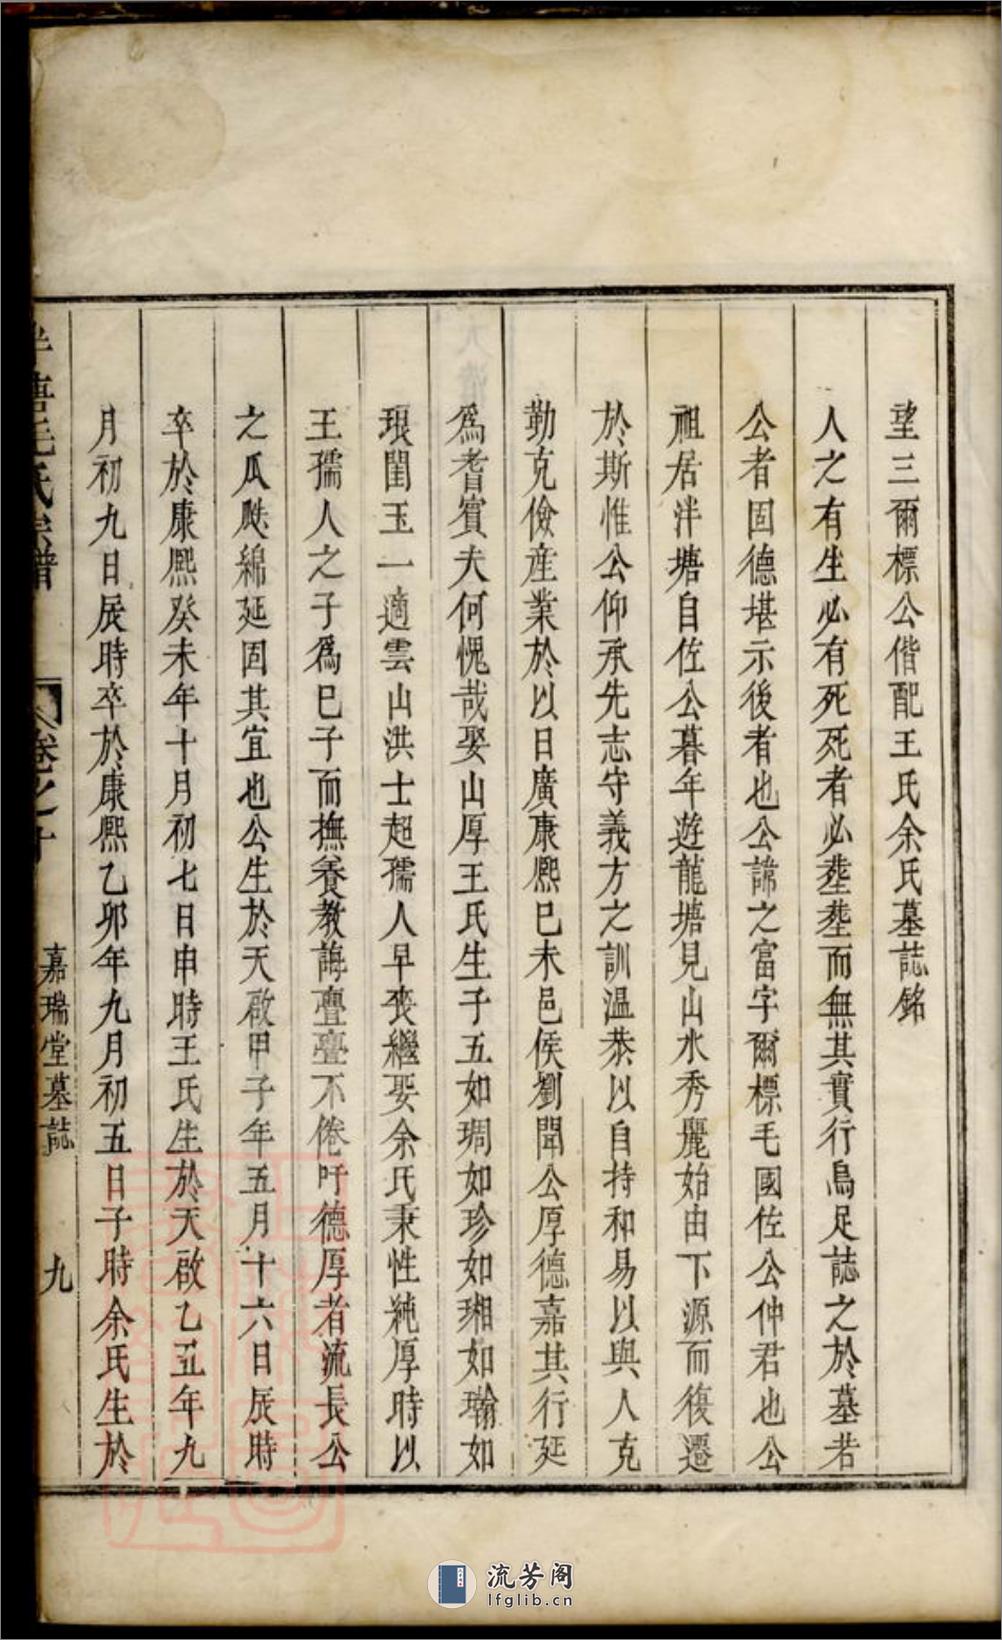 望三爾標公偕配王氏余氏墓誌銘
人之有生必有死死者必塟塟而無其實行烏足誌之於墓若
公者固德堪示後者也公諱之富字爾標毛國佐公仲君也公
祖居泮塘自佐公暮年遊龍塘見山水秀麗始由下源而復遷
於斯惟公仰承先志守義方之訓温恭以自持和易以與人克
勤克儉産業於以日廣康熙已未邑侯劉聞公厚德嘉其行延
為耆賓夫何愧哉娶山厚王氏生子五如琱如珍如瑚如瀚如
琅閨玉一適雲山洪士超孺人早丧繼娶余氏秉性純厚時以
王孺人之子爲已子而撫養教誨亹亹不倦吁德厚者流長公
之瓜瓞綿延固其宜也公生於天啟甲子年五月十六日辰時
卒於康熙癸未年十月初七日申時王氏生於天啟乙丑年九
月初九日辰時卒於康熙乙卯年九月初五日子時余氏生於
泮塘毛氏宗譜
卷之十
嘉瑞堂墓誌
九
流芳阁
lfglib.cn